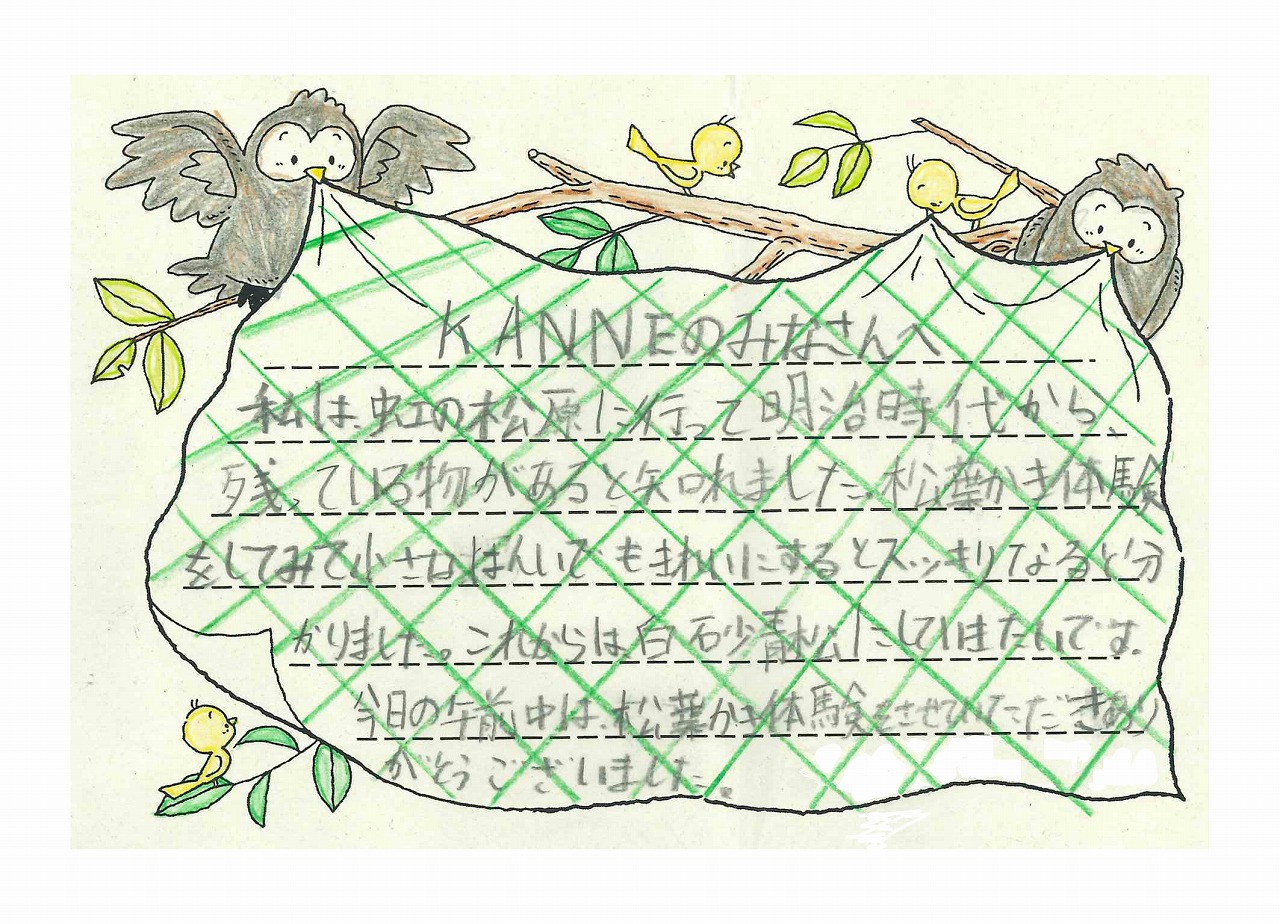 KANNEのみなさんへ
私は虹の松原に行って明治時代から、
残っている物があると知れました。松葉かき体験
をしてみて小さなはんいでもきれいにするとスッキリなると分
かりました。これからは白砂青松にしていきたいです。
今日の午前中は、松葉かき体験をさせていただきあり
がとうございました。